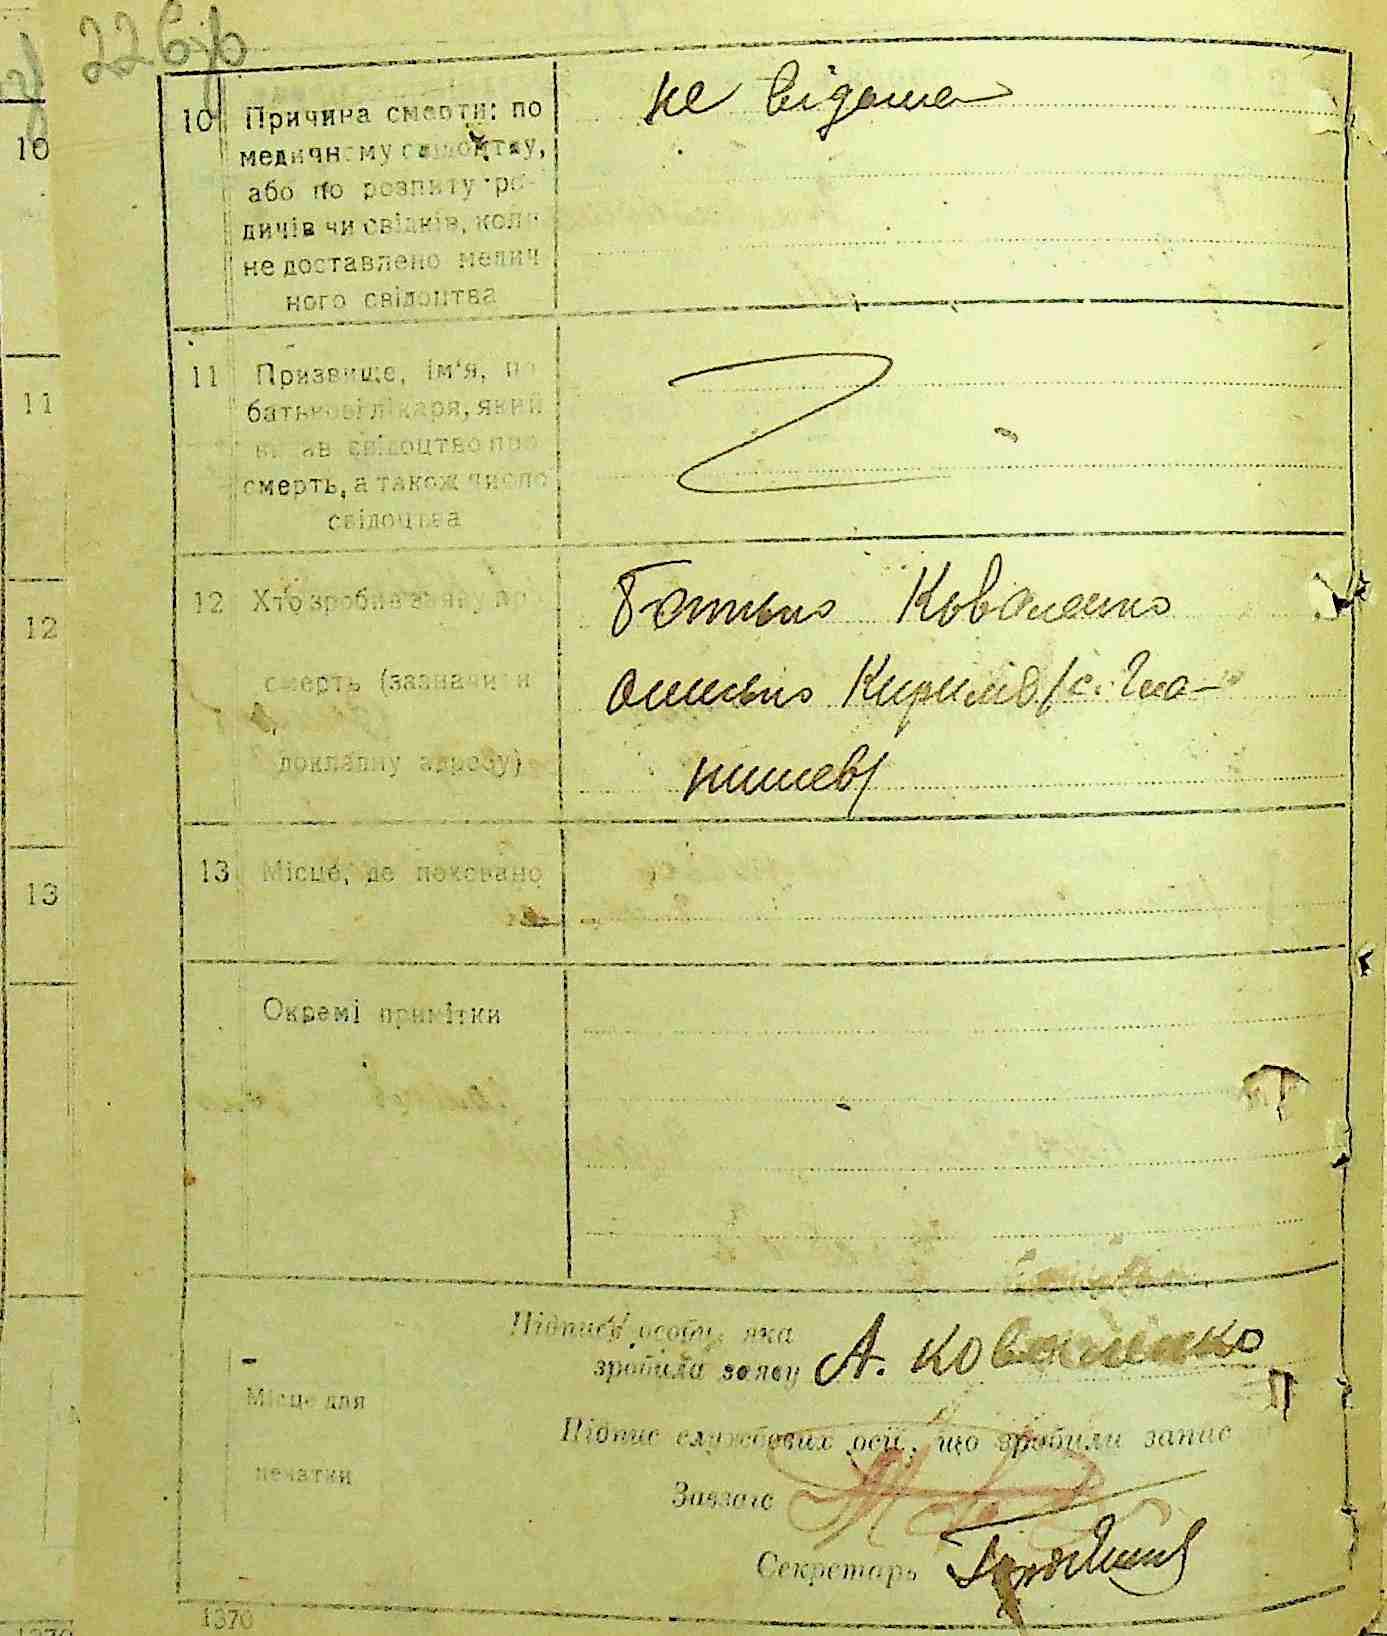 226
10 Причина смерти: по не відома
медичному свідоцтву,
або по розпиту ро-
дичів чи свідків, коли
не доставлено медич
ного свідоцтва
11 Призвище, ім'я, по
батькові лікаря, який
видав свідоцтво про
смерть, а також число
свідоцтва
12 Хто зробив заяву про Батько Коваленко
смерть (зазначити Кирилів /с.
докладну адресу)
13 Місце, де поховано
Окремі примітки
Підпис особи, яка
зробила заяву А. Коваленко
Підпис службових осіб, що зробили запис
Місце для
печатки
Завзагс
Секретарь
1370
10
11
12
13